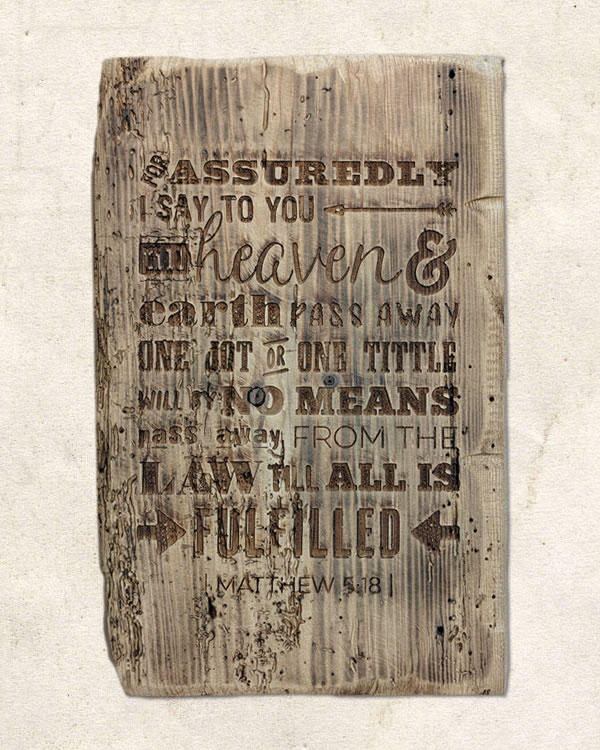 FOR ASSUREDLY
I SAY TO YOU
till heaven &
earth PASS AWAY
ONE JOT OR ONE TITTLE
WILL BY NO MEANS
pass away FROM THE
LAW TILL ALL IS
FULFILLED
| MATTHEW 5:18 |